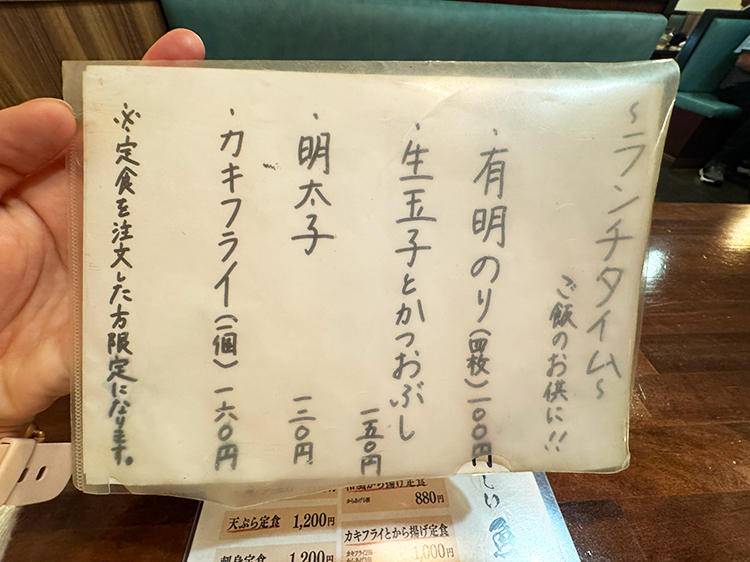 ~ランチタイム~
ご飯のお供に!!
・有明のり(四枚)一〇〇円
・生玉子とかつおぶし 一五〇円
・明太子 一二〇円
・カキフライ(二個)一六〇円
※定食を注文した方限定になります。
しい魚
から揚げ定食
880円
天ぷら定食 1,200円
カキフライとから揚げ定食
1,000円
刺身定食 1,200円